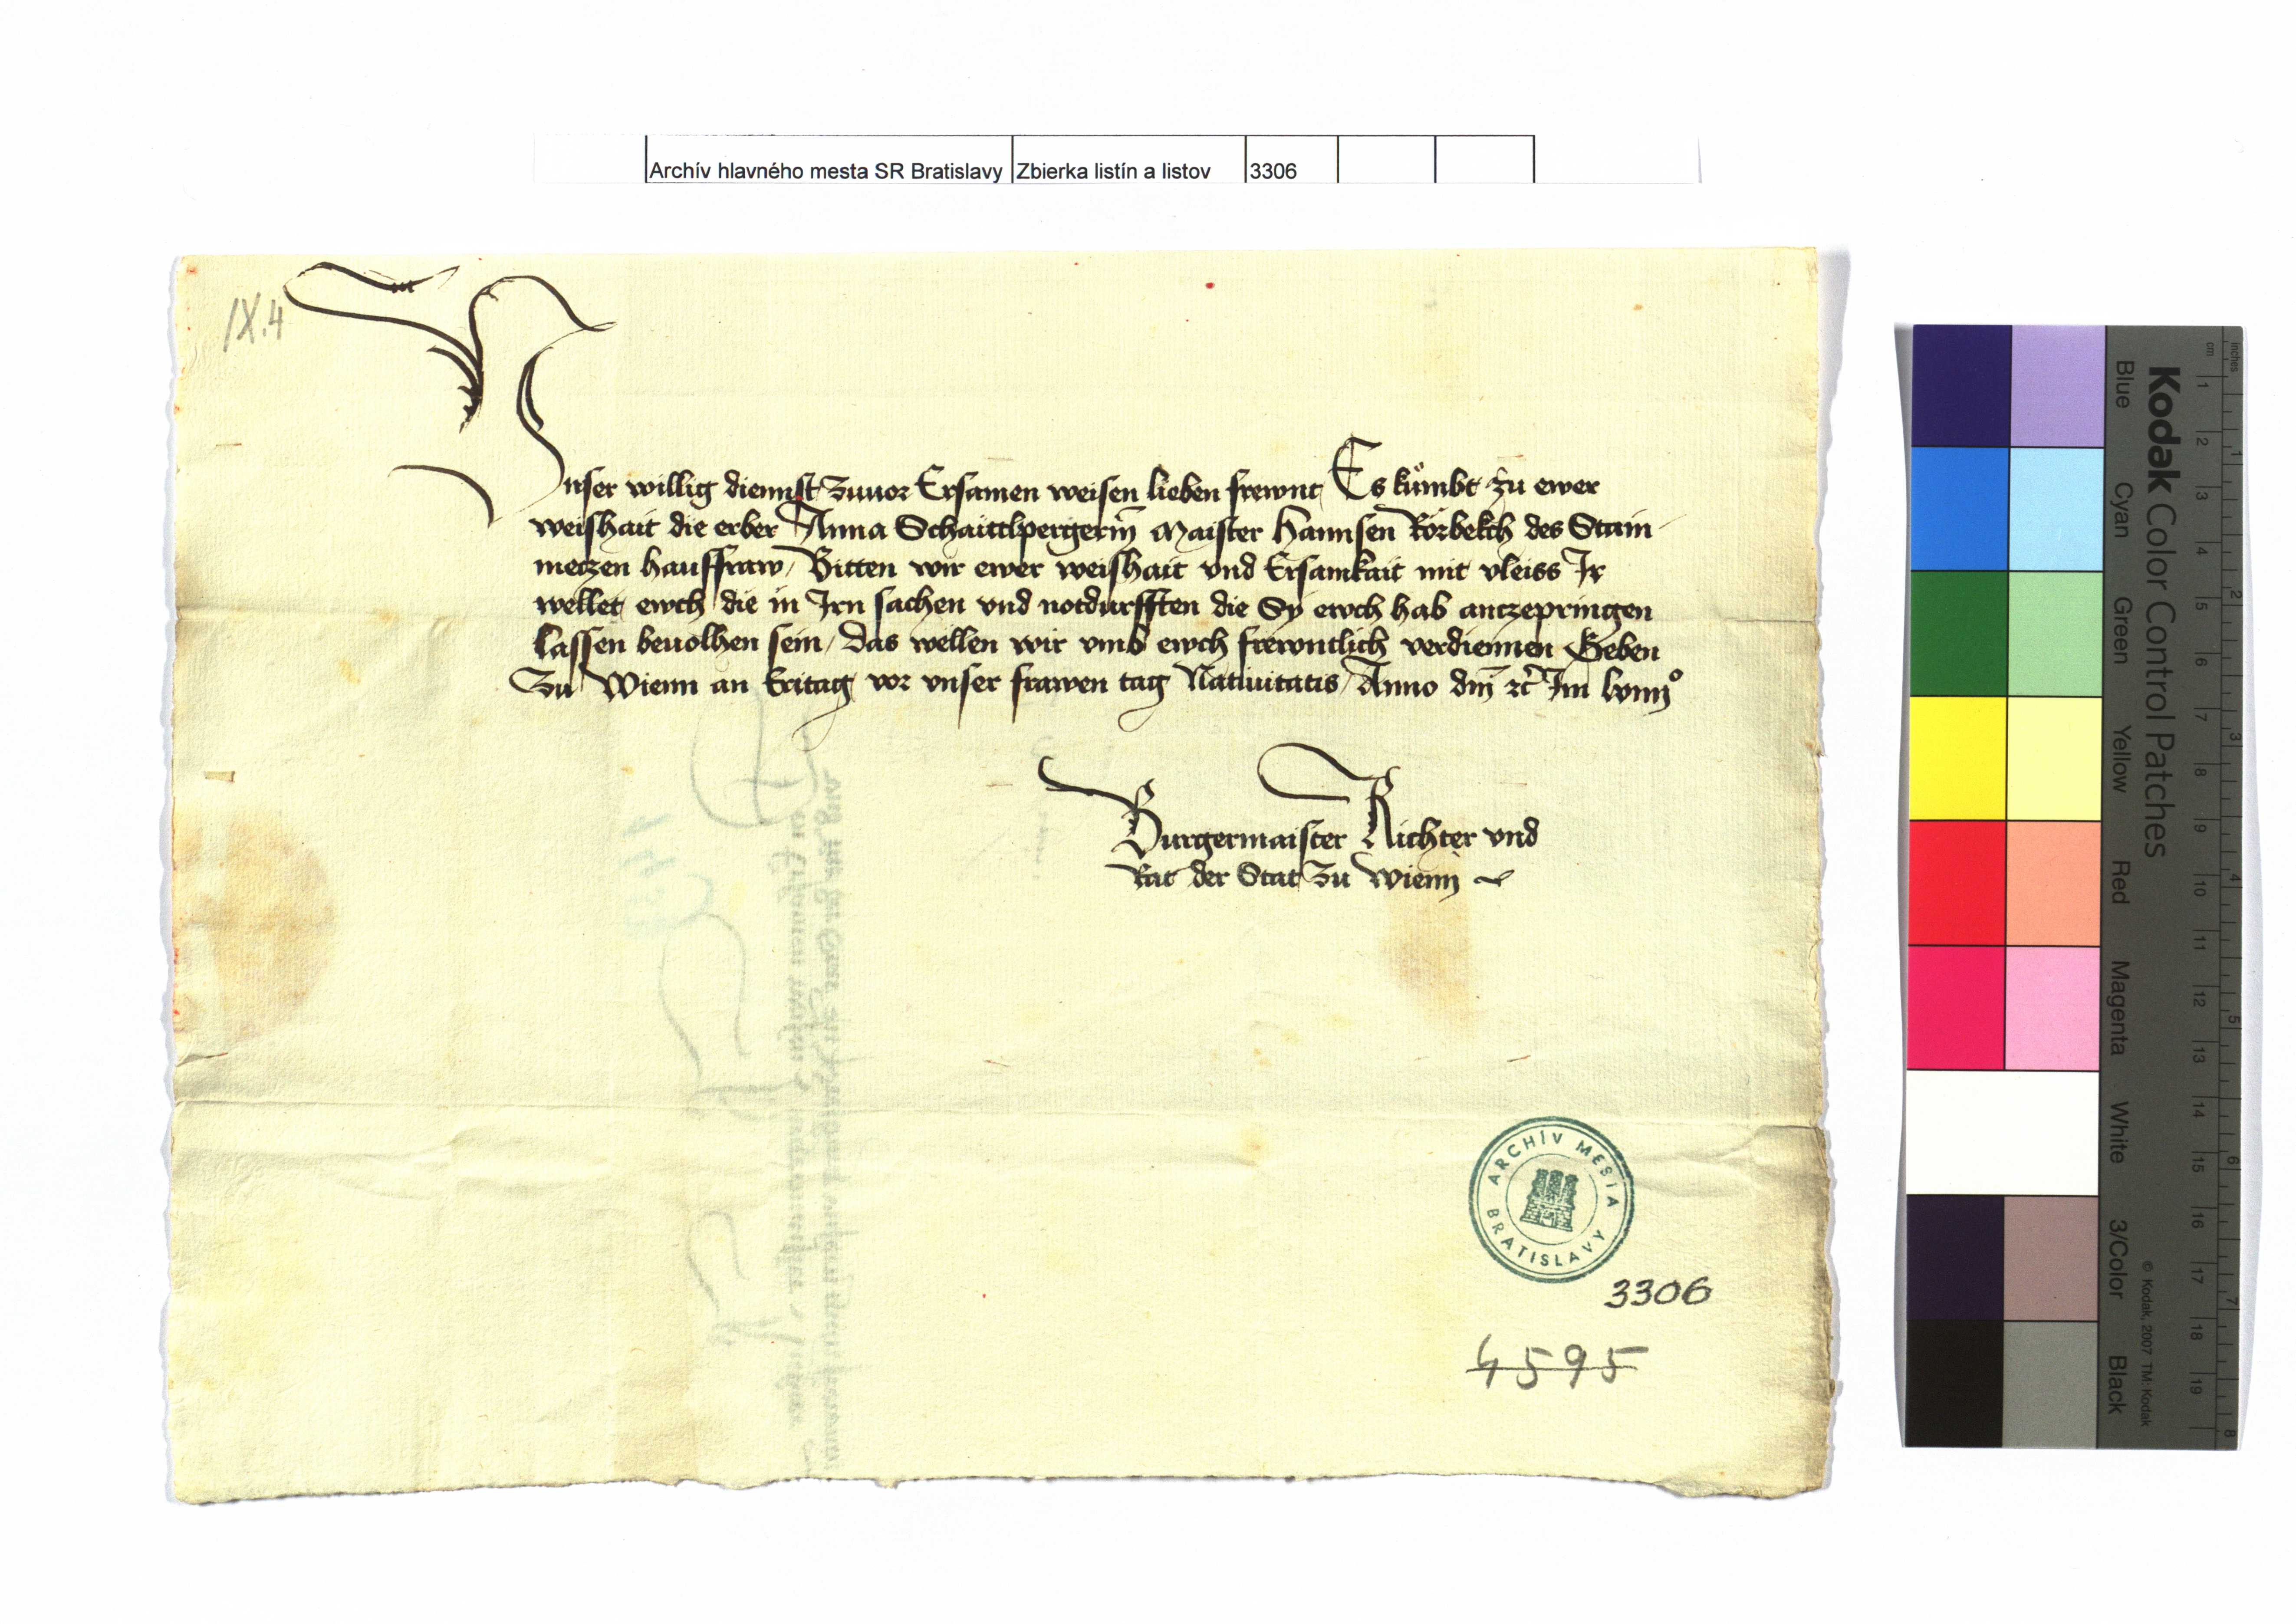 Archív hlavného mesta SR Bratislavy Zbierka listín a listov 3306
IX.4
Vnser willig diennst zuuor Ersamen weisen lieben frewnt Es kůmbt zu ewer
weishait die erber Anna Schaittlpergerin̄ Maister Hannsen Rorbekch des Stain
meczen hausfraw / Bitten wir ewer weishait vnd Ersamkait mit vleiss Ir
wellet ewch die in Irn sachen vnd notdurfften die Sy ewch hab anczepringen
lassen beuolhen sein / Das wellen wir vmb ewch frewntlich verdiennen Geben
Zu Wienn an Eritag vor vnser frawen tag Natiuitatis / Anno dm̄ ꝛc̄ Im lviijº
Burgermaister Richter vnd
Rat der Stat zu Wienn
ARCHÍV MESTA BRATISLAVY
3306
4595
Kodak Color Control Patches
Blue Cyan Green Yellow Red Magenta White 3/Color Black
© Kodak, 2007 TM: Kodak
cm 1 2 3 4 5 6 7 8 9 10 11 12 13 14 15 16 17 18 19
inches 1 2 3 4 5 6 7 8